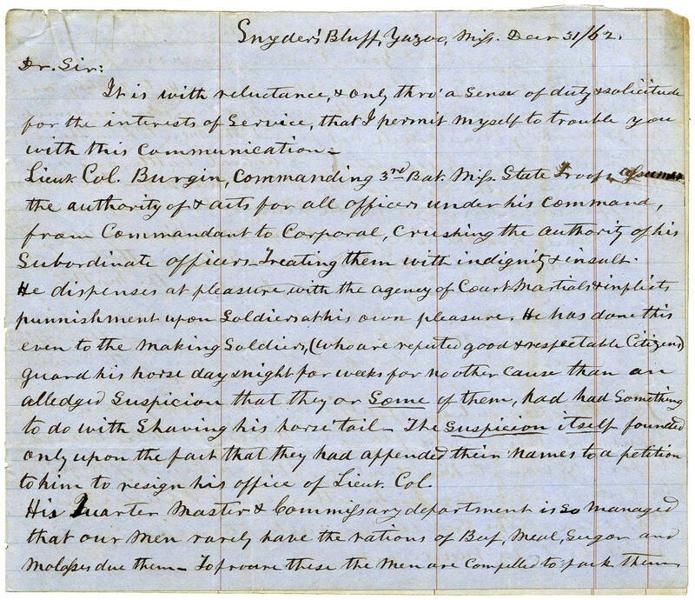 Snyder's Bluff, Yazoo, Miss. Decr 31/62.
Dr. Sir:
It is with reluctance, & only thro' a sense of duty & solicitude
for the interests of Service, that I permit myself to trouble you
with this communication –
Lieut. Col. Burgin, Commanding 3rd Bat. Miss. State Troops, assumes
the authority of & acts for all officers under his command,
from Commandant to Corporal, Crushing the authority of his
Subordinate officers – Treating them with indignity & insult.
He dispenses at pleasure with the agency of Court Martials & inflicts
punnishment upon Soldiers at his own pleasure. He has done this
even to the making Soldiers, (who are reputed good & respectable Citizens)
guard his horse day & night for weeks for no other cause than an
alledged Suspicion that they or Some of them, had had Something
to do with Shaving his horse' tail – The Suspicion itself founded
only upon the fact that they had appended their names to a petition
to him to resign his office of Lieut. Col.
His Quarter Master & Commissary department is so managed
that our men rarely have the rations of Beef, Meal, Sugar and
Molasses due them – To procure these the men are compelled to pack them